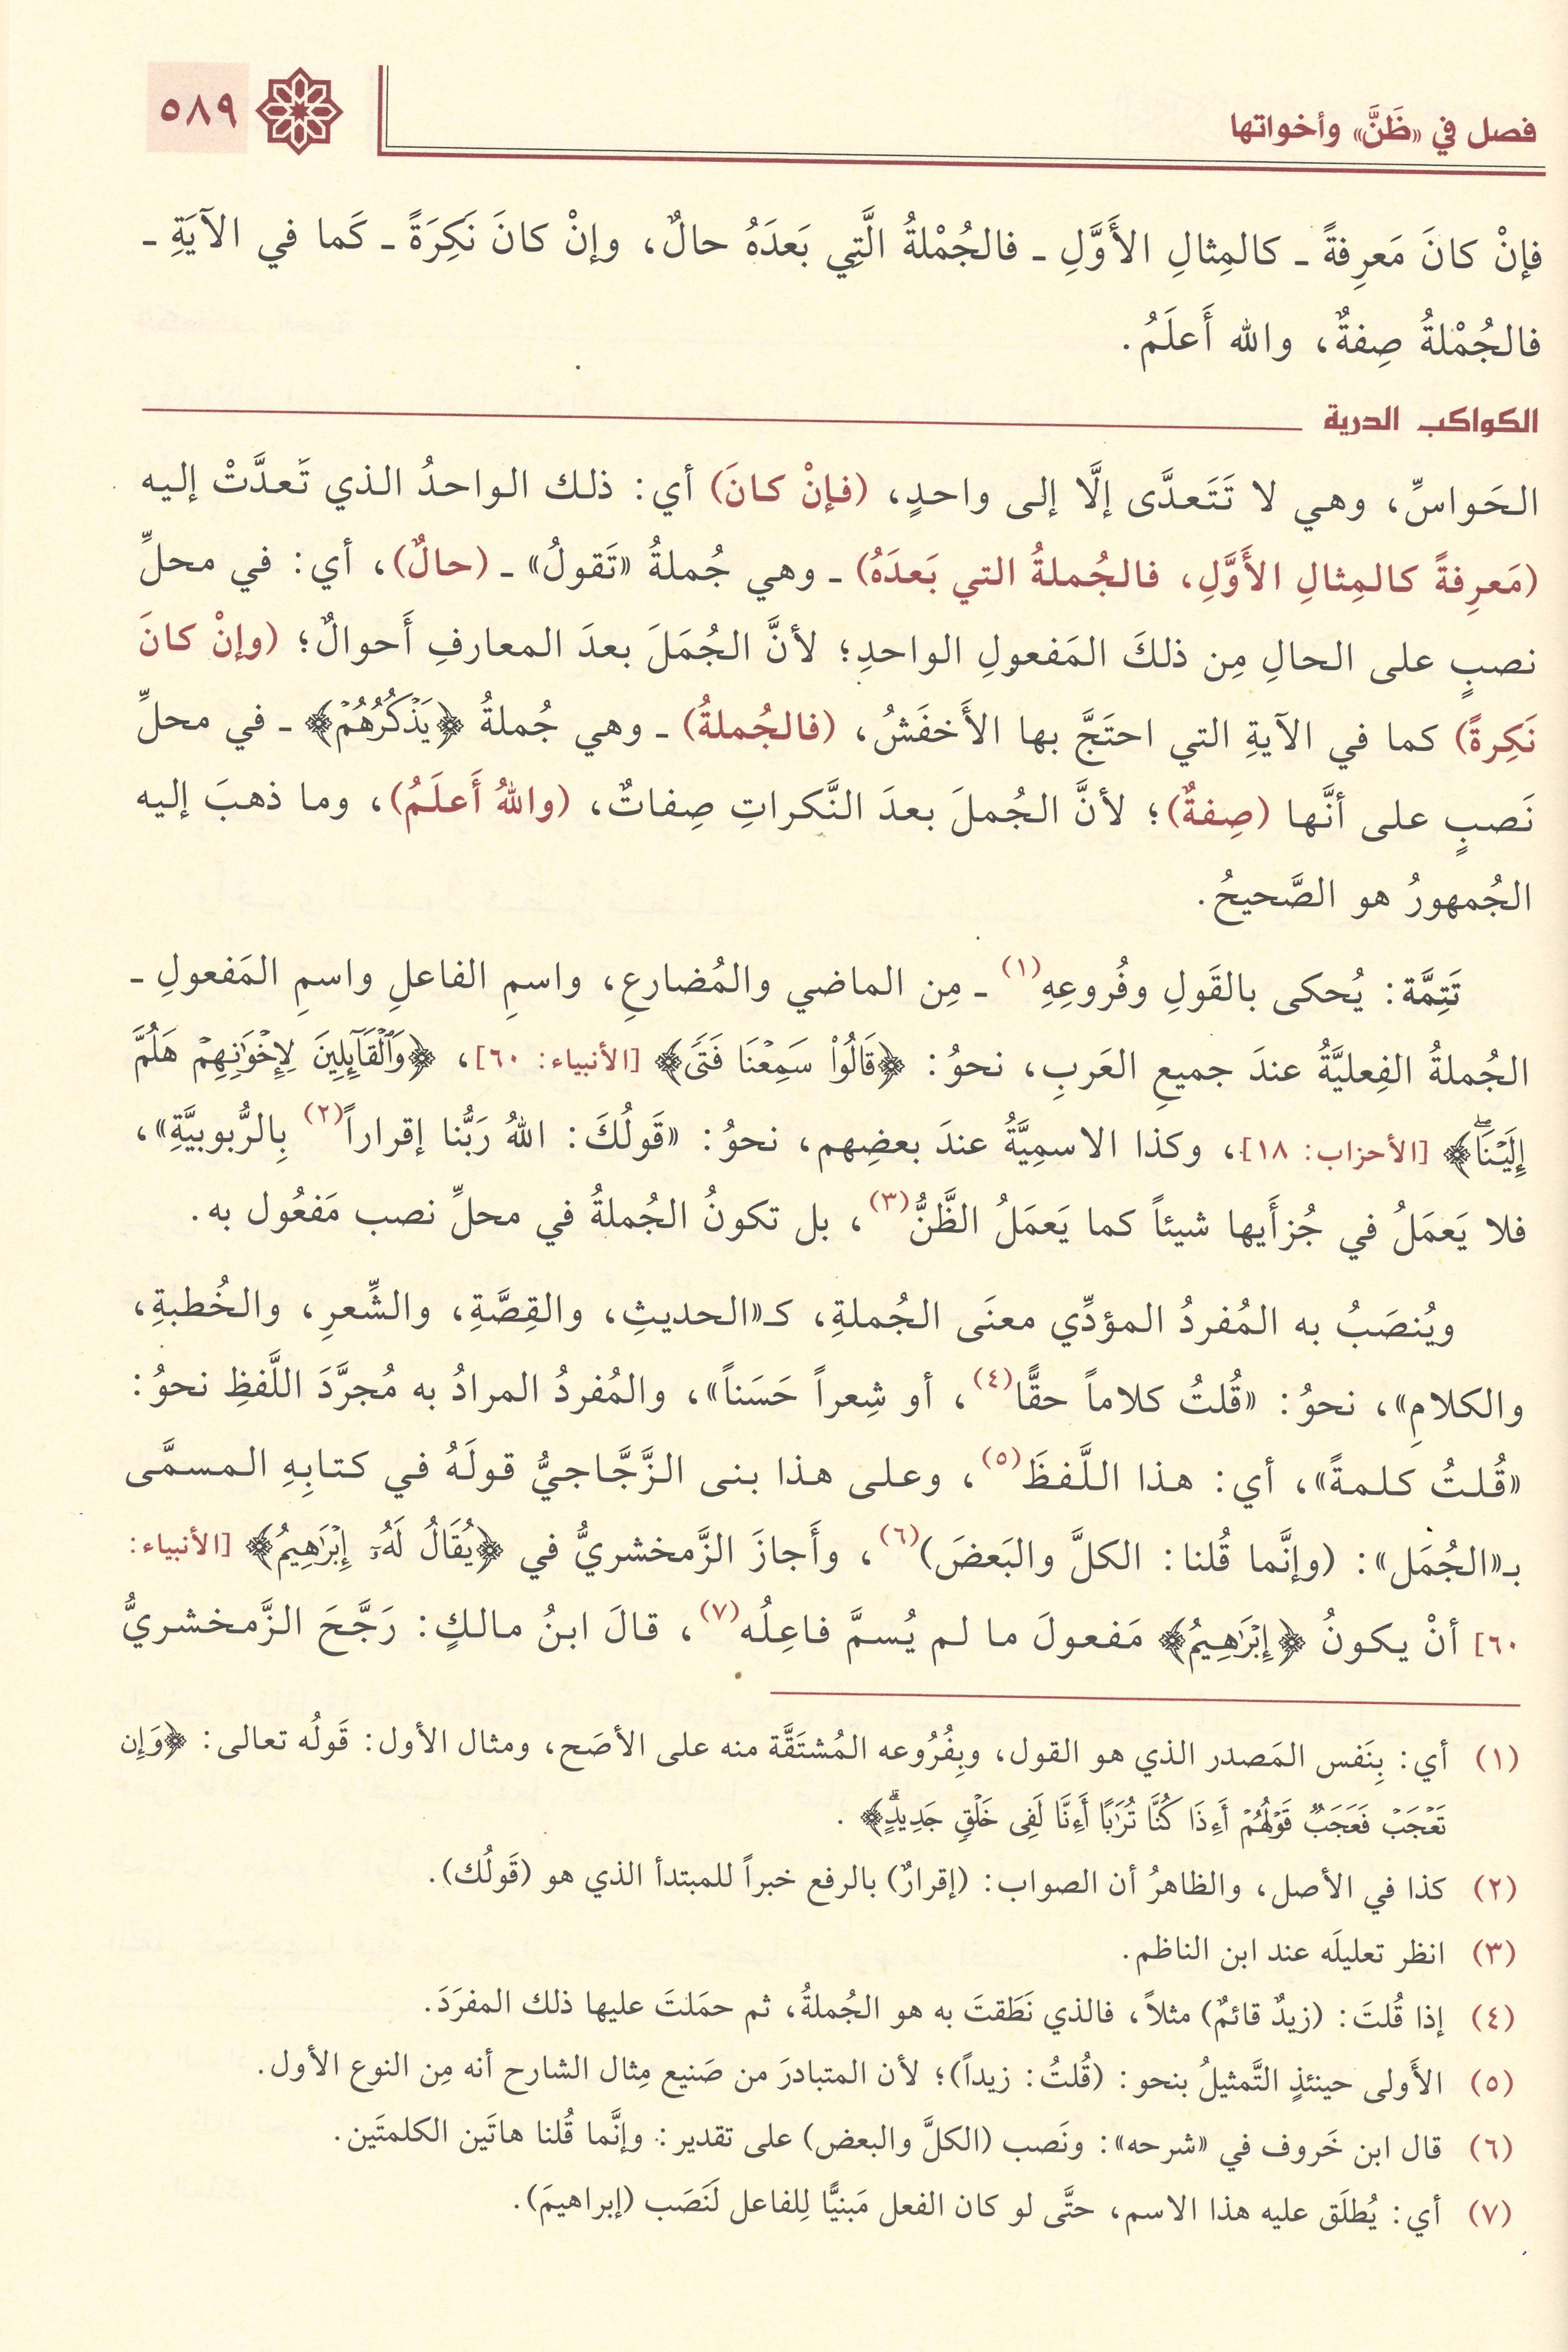 فصل في «ظَنَّ» وأخواتها
٥٨٩
فإنْ كانَ مَعرِفةً ـ كالمِثالِ الأَوَّلِ ـ فالجُمْلةُ الَّتِي بَعدَهُ حالٌ، وإنْ كانَ نَكِرَةً ـ كَما في الآيَةِ ـ
فالجُمْلةُ صِفةٌ، والله أَعلَمُ.
الكواكب الدرية
الحَواسِّ، وهي لا تَتَعدَّى إلَّا إلى واحدٍ، (فإنْ كانَ) أي: ذلك الواحدُ الذي تَعدَّتْ إليه
(مَعرِفةً كالمِثالِ الأَوَّلِ، فالجُملةُ التي بَعدَهُ) ـ وهي جُملةُ «تَقولُ» ـ (حالٌ)، أي: في محلِّ
نصبٍ على الحالِ مِن ذلكَ المَفعولِ الواحدِ؛ لأنَّ الجُمَلَ بعدَ المعارفِ أَحوالٌ؛ (وإنْ كانَ
نَكِرةً) كما في الآيةِ التي احتَجَّ بها الأَخفَشُ، (فالجُملةُ) ـ وهي جُملةُ ﴿يَذْكُرُهُمْ﴾ ـ في محلِّ
نَصبٍ على أنَّها (صِفةٌ)؛ لأنَّ الجُملَ بعدَ النَّكراتِ صِفاتٌ، (واللهُ أَعلَمُ)، وما ذهبَ إليه
الجُمهورُ هو الصَّحيحُ.
تَتِمَّة: يُحكى بالقَولِ وفُروعِهِ(١) ـ مِن الماضي والمُضارعِ، واسمِ الفاعلِ واسمِ المَفعولِ ـ
الجُملةُ الفِعليَّةُ عندَ جميعِ العَربِ، نحوُ: ﴿قَالُواْ سَمِعْنَا فَتًى﴾ [الأنبياء: ٦٠]، ﴿وَٱلْقَآئِلِينَ لِإِخْوَٰنِهِمْ هَلُمَّ
إِلَيْنَاۖ﴾ [الأحزاب: ١٨]، وكذا الاسمِيَّةُ عندَ بعضِهم، نحوُ: «قَولُكَ: اللهُ رَبُّنا إقراراً(٢) بِالرُّبوبيَّةِ»،
فلا يَعمَلُ في جُزأَيها شيئاً كما يَعمَلُ الظَّنُّ(٣)، بل تكونُ الجُملةُ في محلِّ نصب مَفعُول به.
ويُنصَبُ به المُفردُ المؤدِّي معنَى الجُملةِ، كـ«الحديثِ، والقِصَّةِ، والشِّعرِ، والخُطبةِ،
والكلامِ»، نحوُ: «قُلتُ كلاماً حقًّا(٤)، أو شِعراً حَسَناً»، والمُفردُ المرادُ به مُجرَّدَ اللَّفظِ نحوُ:
«قُلتُ كلمةً»، أي: هذا اللَّفظَ(٥)، وعلى هذا بنى الزَّجَّاجيُّ قولَهُ في كتابِهِ المسمَّى
بـ«الجُمَل»: (وإنَّما قُلنا: الكلَّ والبَعضَ)(٦)، وأَجازَ الزَّمخشريُّ في ﴿يُقَالُ لَهُۥٓ إِبْرَٰهِيمُ﴾ [الأنبياء:
٦٠] أنْ يكونُ ﴿إِبْرَٰهِيمُ﴾ مَفعولَ ما لم يُسمَّ فاعِلُه(٧)، قالَ ابنُ مالكٍ: رَجَّحَ الزَّمخشريُّ
(١) أي: بِنَفس المَصدر الذي هو القول، وبِفُرُوعه المُشتَقَّة منه على الأصَح، ومثال الأول: قَولُه تعالى: ﴿وَإِن
تَعْجَبْ فَعَجَبٌ قَوْلُهُمْ أَءِذَا كُنَّا تُرَٰبًا أَءِنَّا لَفِى خَلْقٍ جَدِيدٍۗ﴾.
(٢) كذا في الأصل، والظاهرُ أن الصواب: (إقرارٌ) بالرفع خبراً للمبتدأ الذي هو (قَولُك).
(٣) انظر تعليلَه عند ابن الناظم.
(٤) إذا قُلتَ: (زيدٌ قائمٌ) مثلاً، فالذي نَطَقتَ به هو الجُملةُ، ثم حمَلتَ عليها ذلك المفرَدَ.
(٥) الأَولى حينئذٍ التَّمثيلُ بنحو: (قُلتُ: زيداً)؛ لأن المتبادرَ من صَنيع مِثال الشارح أنه مِن النوع الأول.
(٦) قال ابن خَروف في «شرحه»: ونَصب (الكلَّ والبعض) على تقدير: وإنَّما قُلنا هاتَين الكلمتَين.
(٧) أي: يُطلَق عليه هذا الاسم، حتَّى لو كان الفعل مَبنيًّا لِلفاعل لَنَصَب (إبراهيمَ).